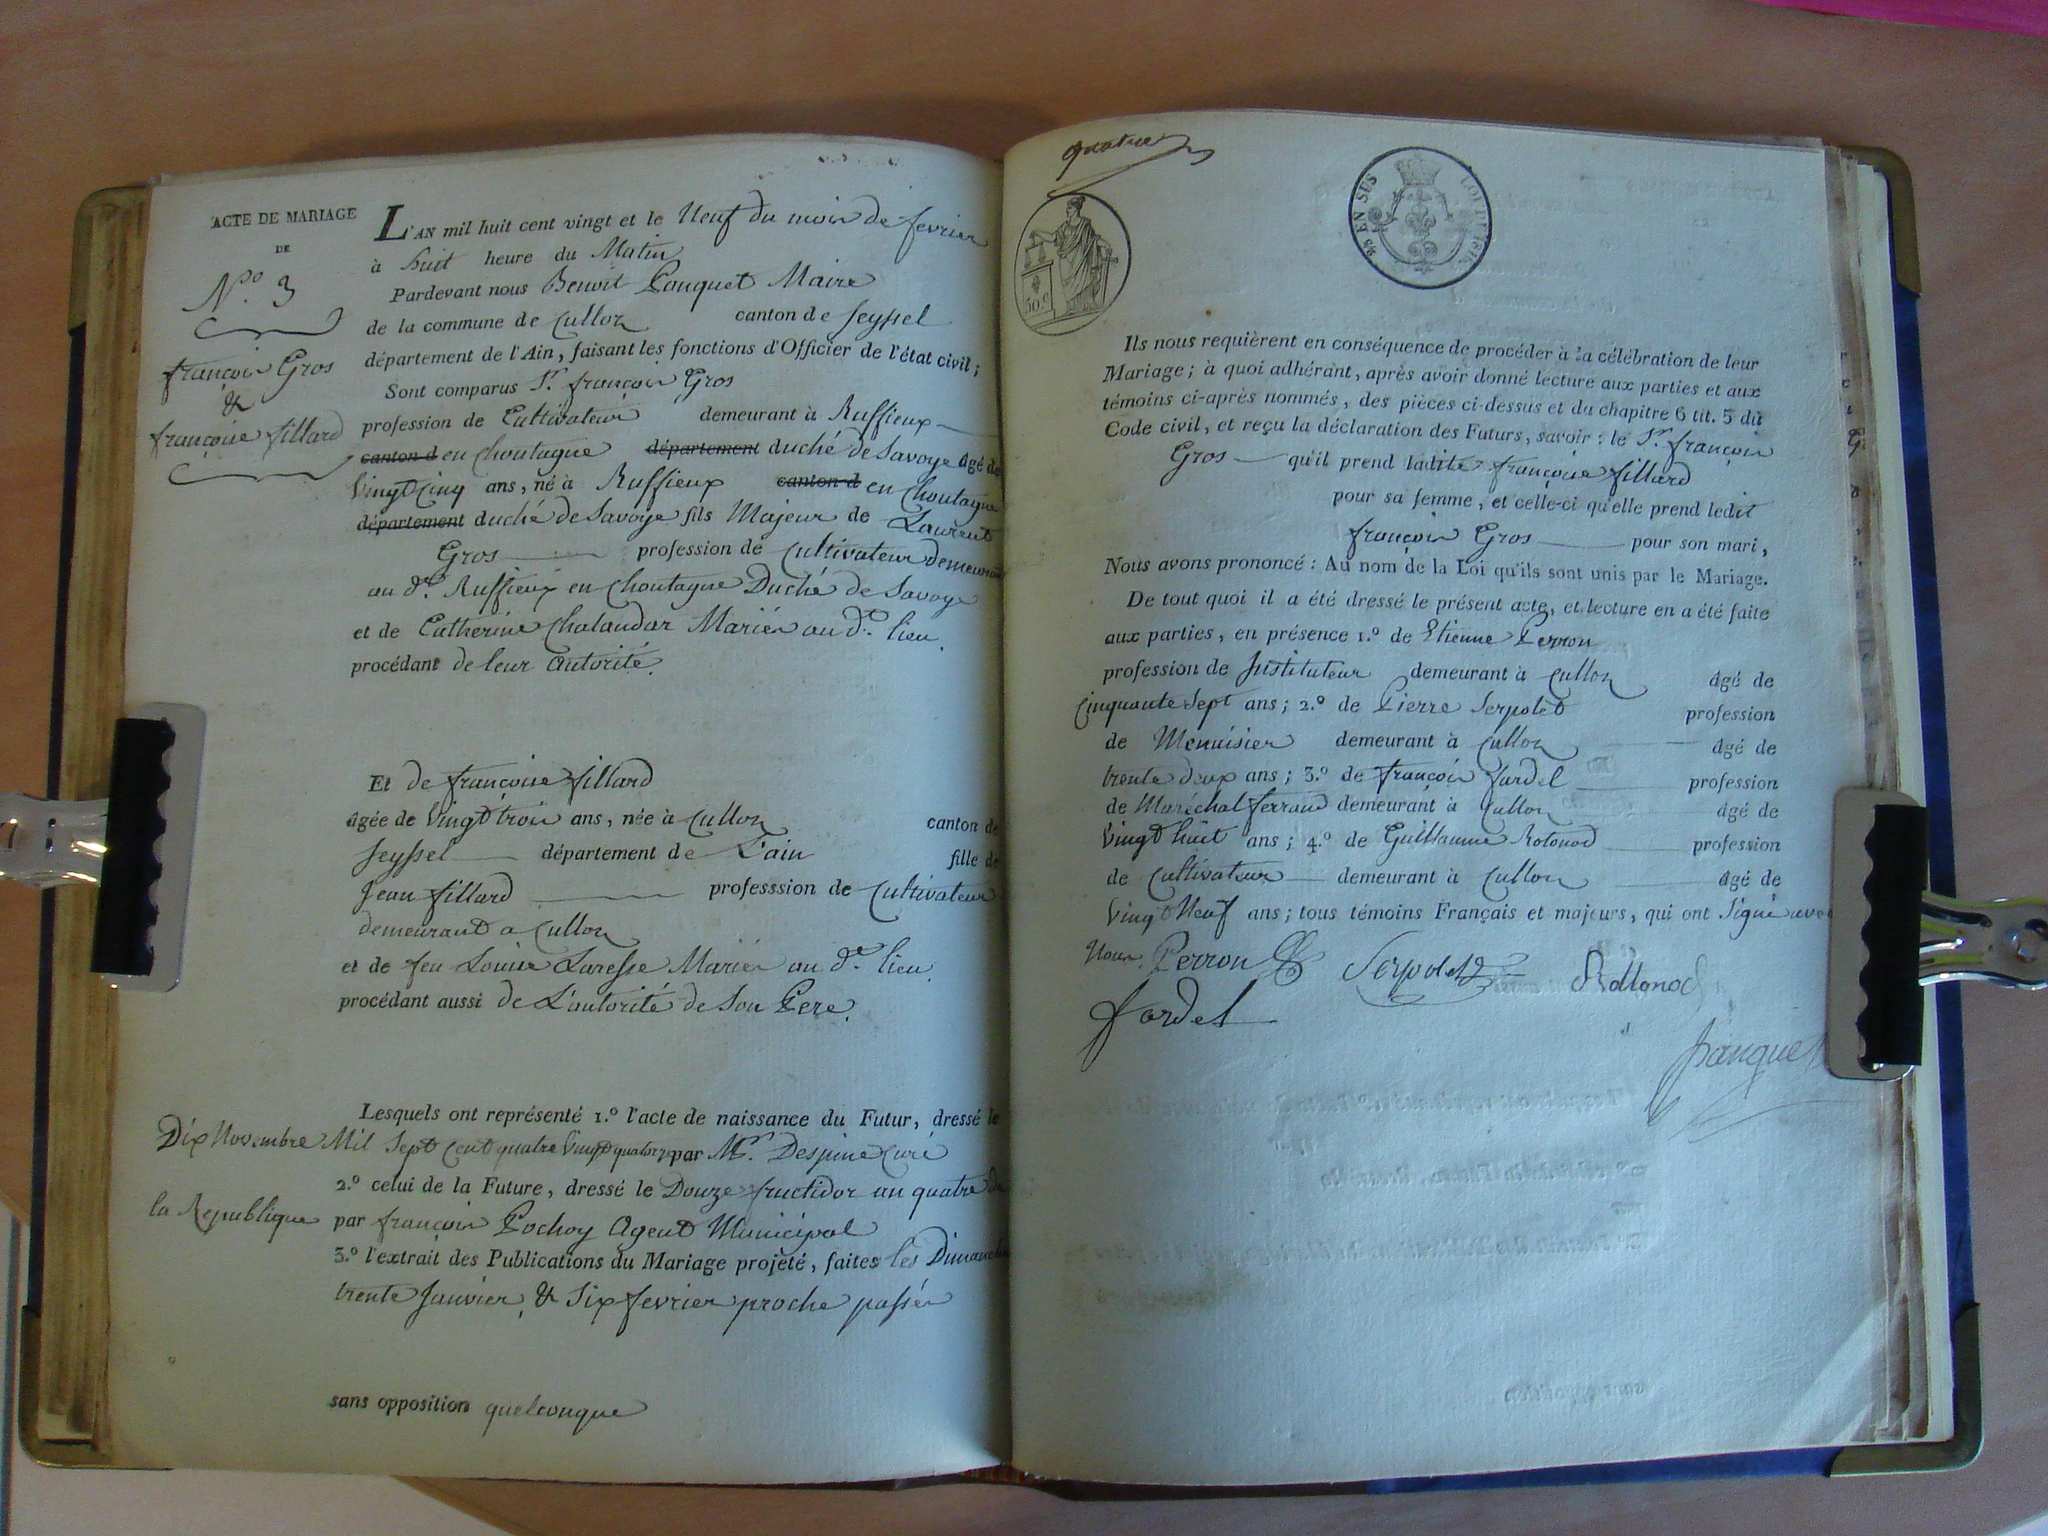 ACTE DE MARIAGE
DE
N.º 3
françois Gros
&
françoise fillard
L'AN mil huit cent vingt et le Neuf du mois de fevrier
à huit heure du Matin
Pardevant nous Benoit Ponquet Maire
de la commune de Culloz canton de Seyssel
département de l'Ain, faisant les fonctions d'Officier de l'état civil ;
Sont comparus S.r françois Gros
profession de Cultivateur demeurant à Ruffieux
canton d en Choutagne département duché de Savoye âgé de
Vingt Cinq ans, né à Ruffieux canton d en Choutagne
département duché de Savoye fils Majeur de Laurent
Gros profession de Cultivateur demeurant
au d.t Ruffieux en Choutagne Duché de Savoye
et de Catherine Chalandar Mariés au d.t lieu.
procédant de leur autorité.
Et de françoise fillard
âgée de Vingt trois ans, née à Culloz canton de
Seyssel département de L'ain fille de
Jean fillard professsion de Cultivateur
demeurant a Culloz
et de feu Louise Laresse Mariés au d.t lieu.
procédant aussi de L'autorité de Son Pere.
Lesquels ont représenté 1.º l'acte de naissance du Futur, dressé le
Dix Novembre Mil Sept Cent quatre Vingt quatorze par M.r Despine Curé
2.º celui de la Future, dressé le Douze fructidor an quatre de
la Republique par françois Pochoy Agent Municipal
3.º l'extrait des Publications du Mariage projeté, faites les Dimanches
trente Janvier, & Six fevrier proche passés
sans opposition quelconque
quatre
50 c
Ils nous requièrent en conséquence de procéder à la célébration de leur
Mariage ; à quoi adhérant, après avoir donné lecture aux parties et aux
témoins ci-après nommés, des pièces ci-dessus et du chapitre 6 tit. 5 du
Code civil, et reçu la déclaration des Futurs, savoir : le S.r françois
Gros qu'il prend ladite françoise fillard
pour sa femme, et celle-ci qu'elle prend ledit
françois Gros pour son mari,
Nous avons prononcé : Au nom de la Loi qu'ils sont unis par le Mariage.
De tout quoi il a été dressé le présent acte, et lecture en a été faite
aux parties, en présence 1.º de Etienne Perron
profession de Instituteur demeurant à Culloz âgé de
Cinquante Sept ans ; 2.º de Pierre Serpolet profession
de Menuisier demeurant à Culloz âgé de
trente deux ans ; 3.º de françois Jardel profession
de Maréchal ferrand demeurant à Culloz âgé de
Vingt huit ans ; 4.º de Guillaume Rotonod profession
de Cultivateur demeurant à Culloz âgé de
Vingt Neuf ans ; tous témoins Français et majeurs, qui ont Signé avec
Nous. Perron Serpolet Rottonod
Jardel